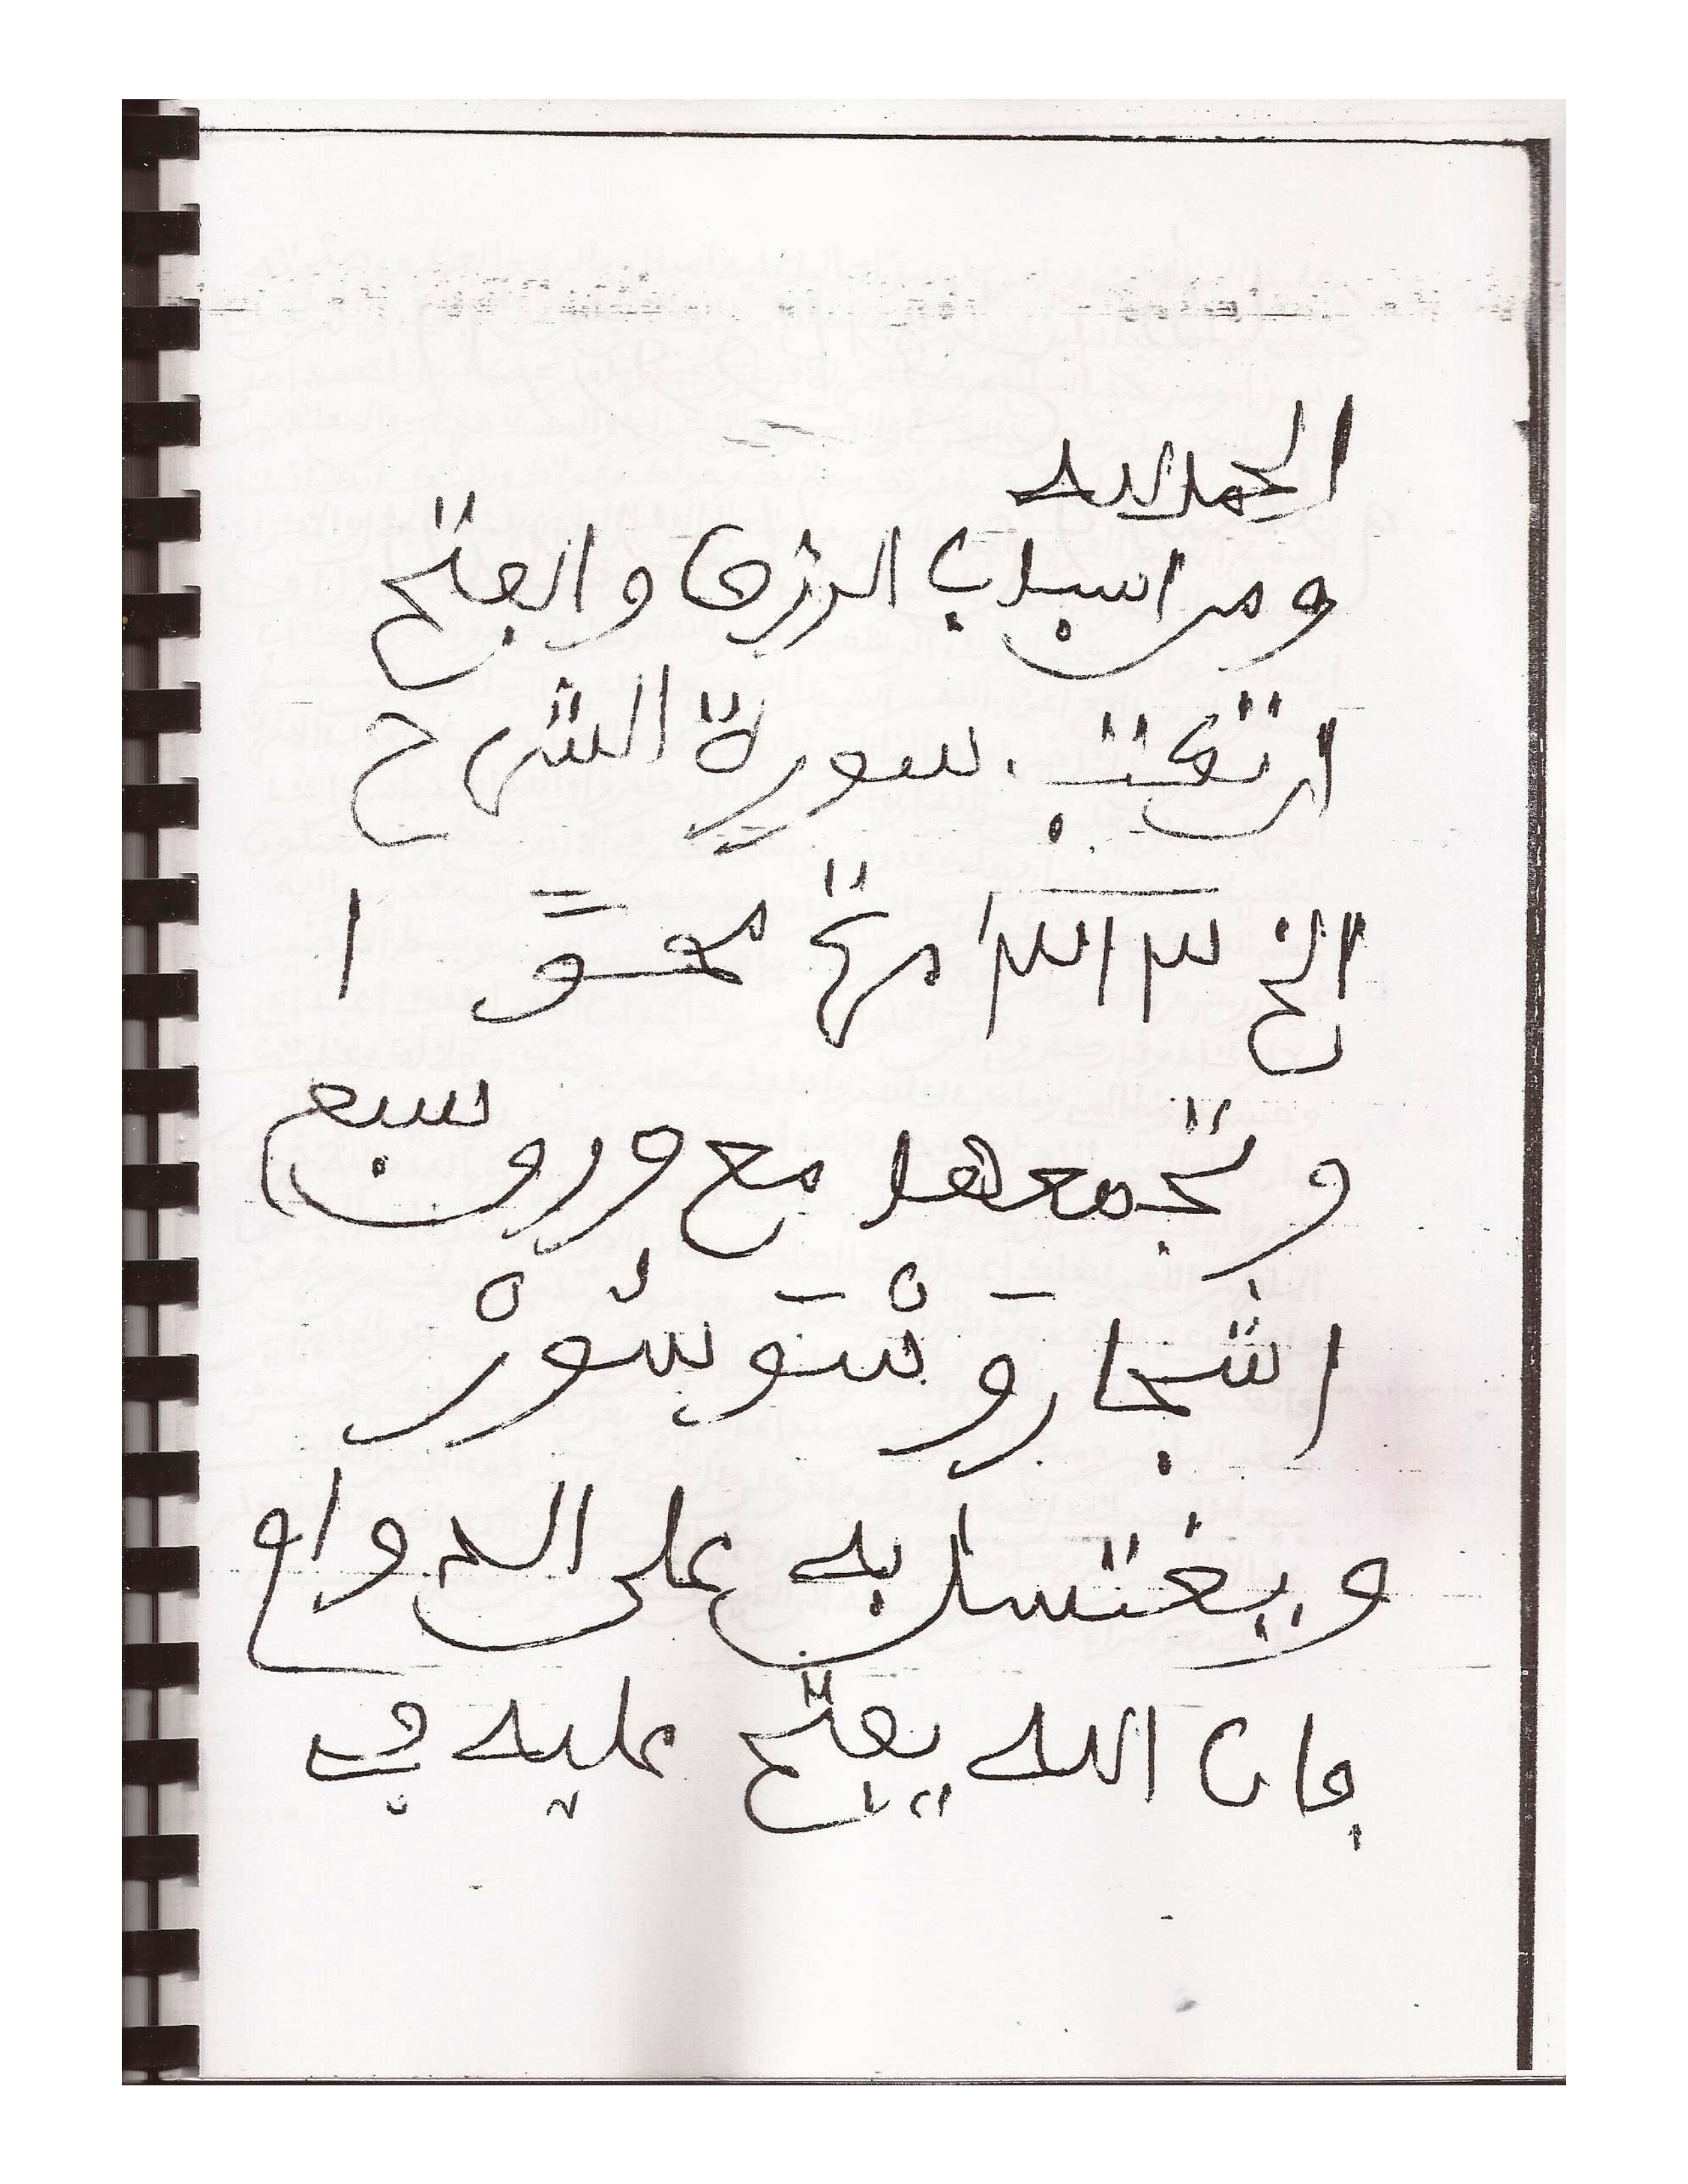 الحمد لله
ومن اسباب الرزق والفتح
ان تكتب سورة الشرح
الخ مرة محوًّا
وتجمعها مع ورق سبع
اشجار وَ
ويغتسل به على الدوام
فان الله يفتح عليه في